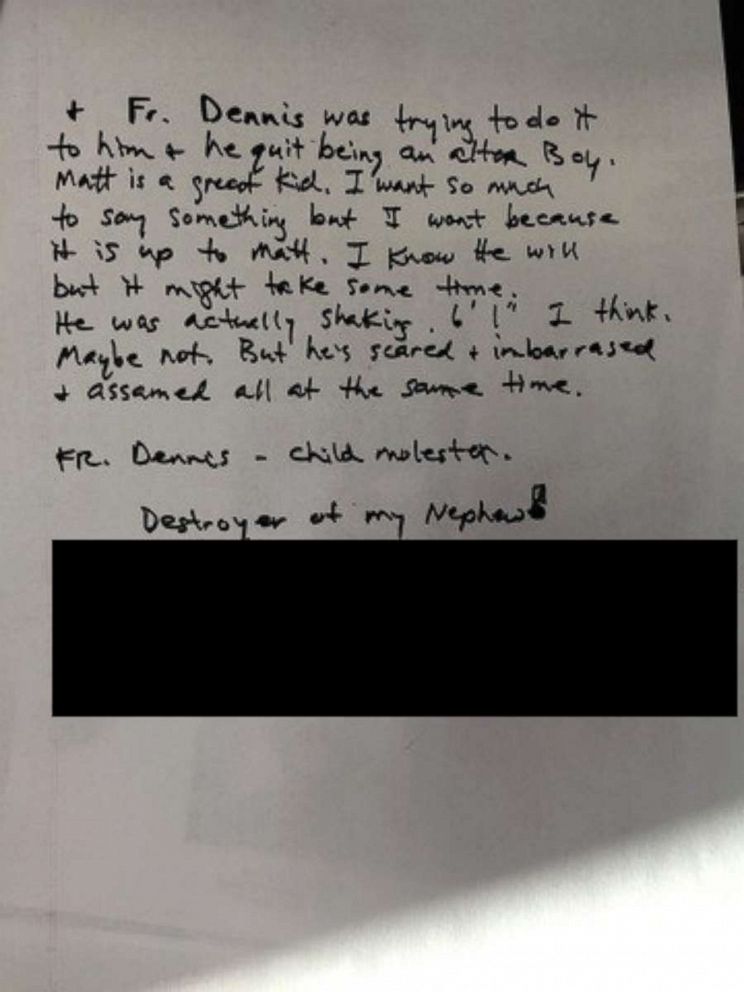 + Fr. Dennis was trying to do it
to him + he quit being an altar Boy.
Matt is a great kid. I want so much
to say something but I wont because
it is up to Matt. I know He will
but it might take some time.
He was actually shaking. 6'1" I think.
Maybe not. But he's scared + imbarrased
+ assamed all at the same time.
FR. Dennis - child molester.
Destroyer of my Nephew